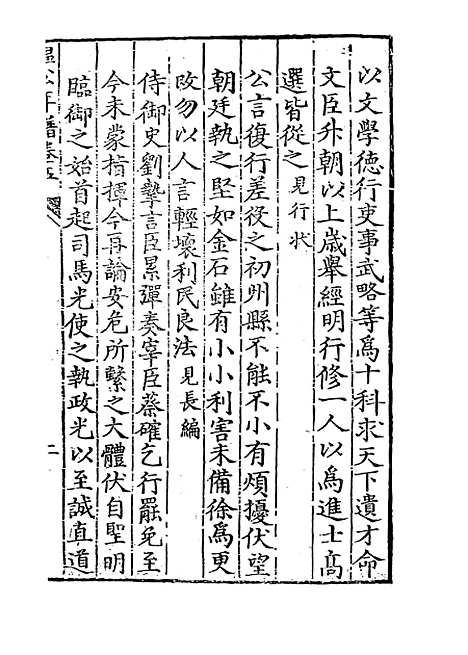 以文學德行吏事武略等爲十科求天下遺才命
文臣升朝以上歳舉經明行修一人以爲進士髙
選皆從之見行状
公言復行差役之初州縣不能不小有煩擾伏望
朝廷執之堅如金石雖有小小利害未備徐爲更
改勿以人言輕壊利民良法見長編
侍御史劉摯言臣累彈奏宰臣蔡確乞行罷免至
今未蒙指揮今再論安危所繫之大體伏自聖明
臨御之始首起司馬光使之執政光以至誠直道
温公年譜卷五
二